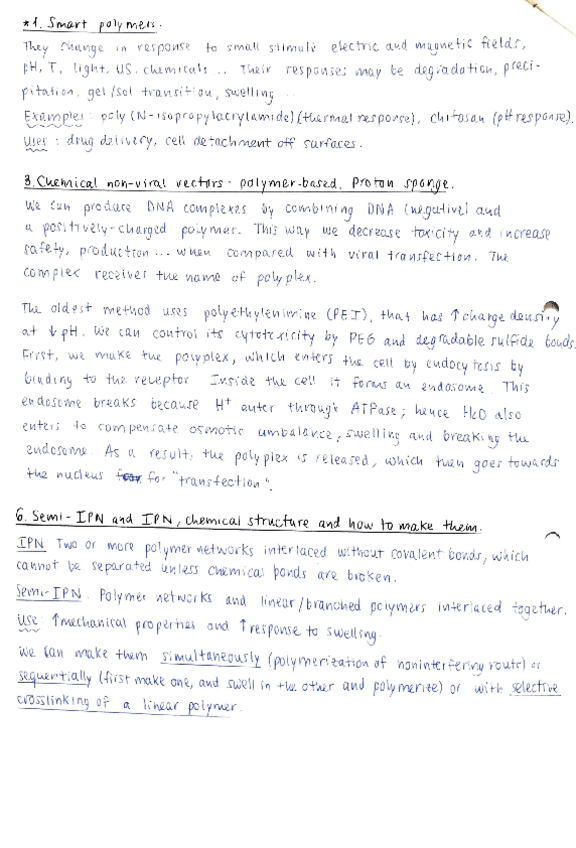 *1. Smart polymers.
They change in response to small stimuli: electric and magnetic fields,
pH, T, light, US, chemicals... Their responses may be degradation, preci-
pitation, gel/sol transition, swelling...
Examples: poly(N-isopropylacrylamide)(thermal response), chitosan (pH response).
Uses: drug delivery, cell detachment off surfaces.
3. Chemical non-viral vectors - polymer-based. Proton sponge.
We can produce DNA complexes by combining DNA (negative) and
a positively-charged polymer. This way we decrease toxicity and increase
safety, production... when compared with viral transfection. The
complex receives the name of polyplex.
The oldest method uses polyethylenimine (PEI), that has ↑charge density
at ↓pH. We can control its cytotoxicity by PEG and degradable sulfide bonds.
First, we make the polyplex, which enters the cell by endocytosis by
binding to the receptor. Inside the cell it forms an endosome. This
endosome breaks because H⁺ enter through ATPase; hence H₂O also
enters to compensate osmotic umbalance, swelling and breaking the
endosome. As a result, the polyplex is released, which then goes towards
the nucleus for "transfection".
6. Semi-IPN and IPN, chemical structure and how to make them.
IPN Two or more polymer networks interlaced without covalent bonds, which
cannot be separated unless chemical bonds are broken.
Semi-IPN. Polymer networks and linear/branched polymers interlaced together.
Use: ↑mechanical properties and ↑response to swelling.
We can make them simultaneously (polymerization of noninterfering route) or
sequentially (first make one, and swell in the other and polymerize) or with selective
crosslinking of a linear polymer.